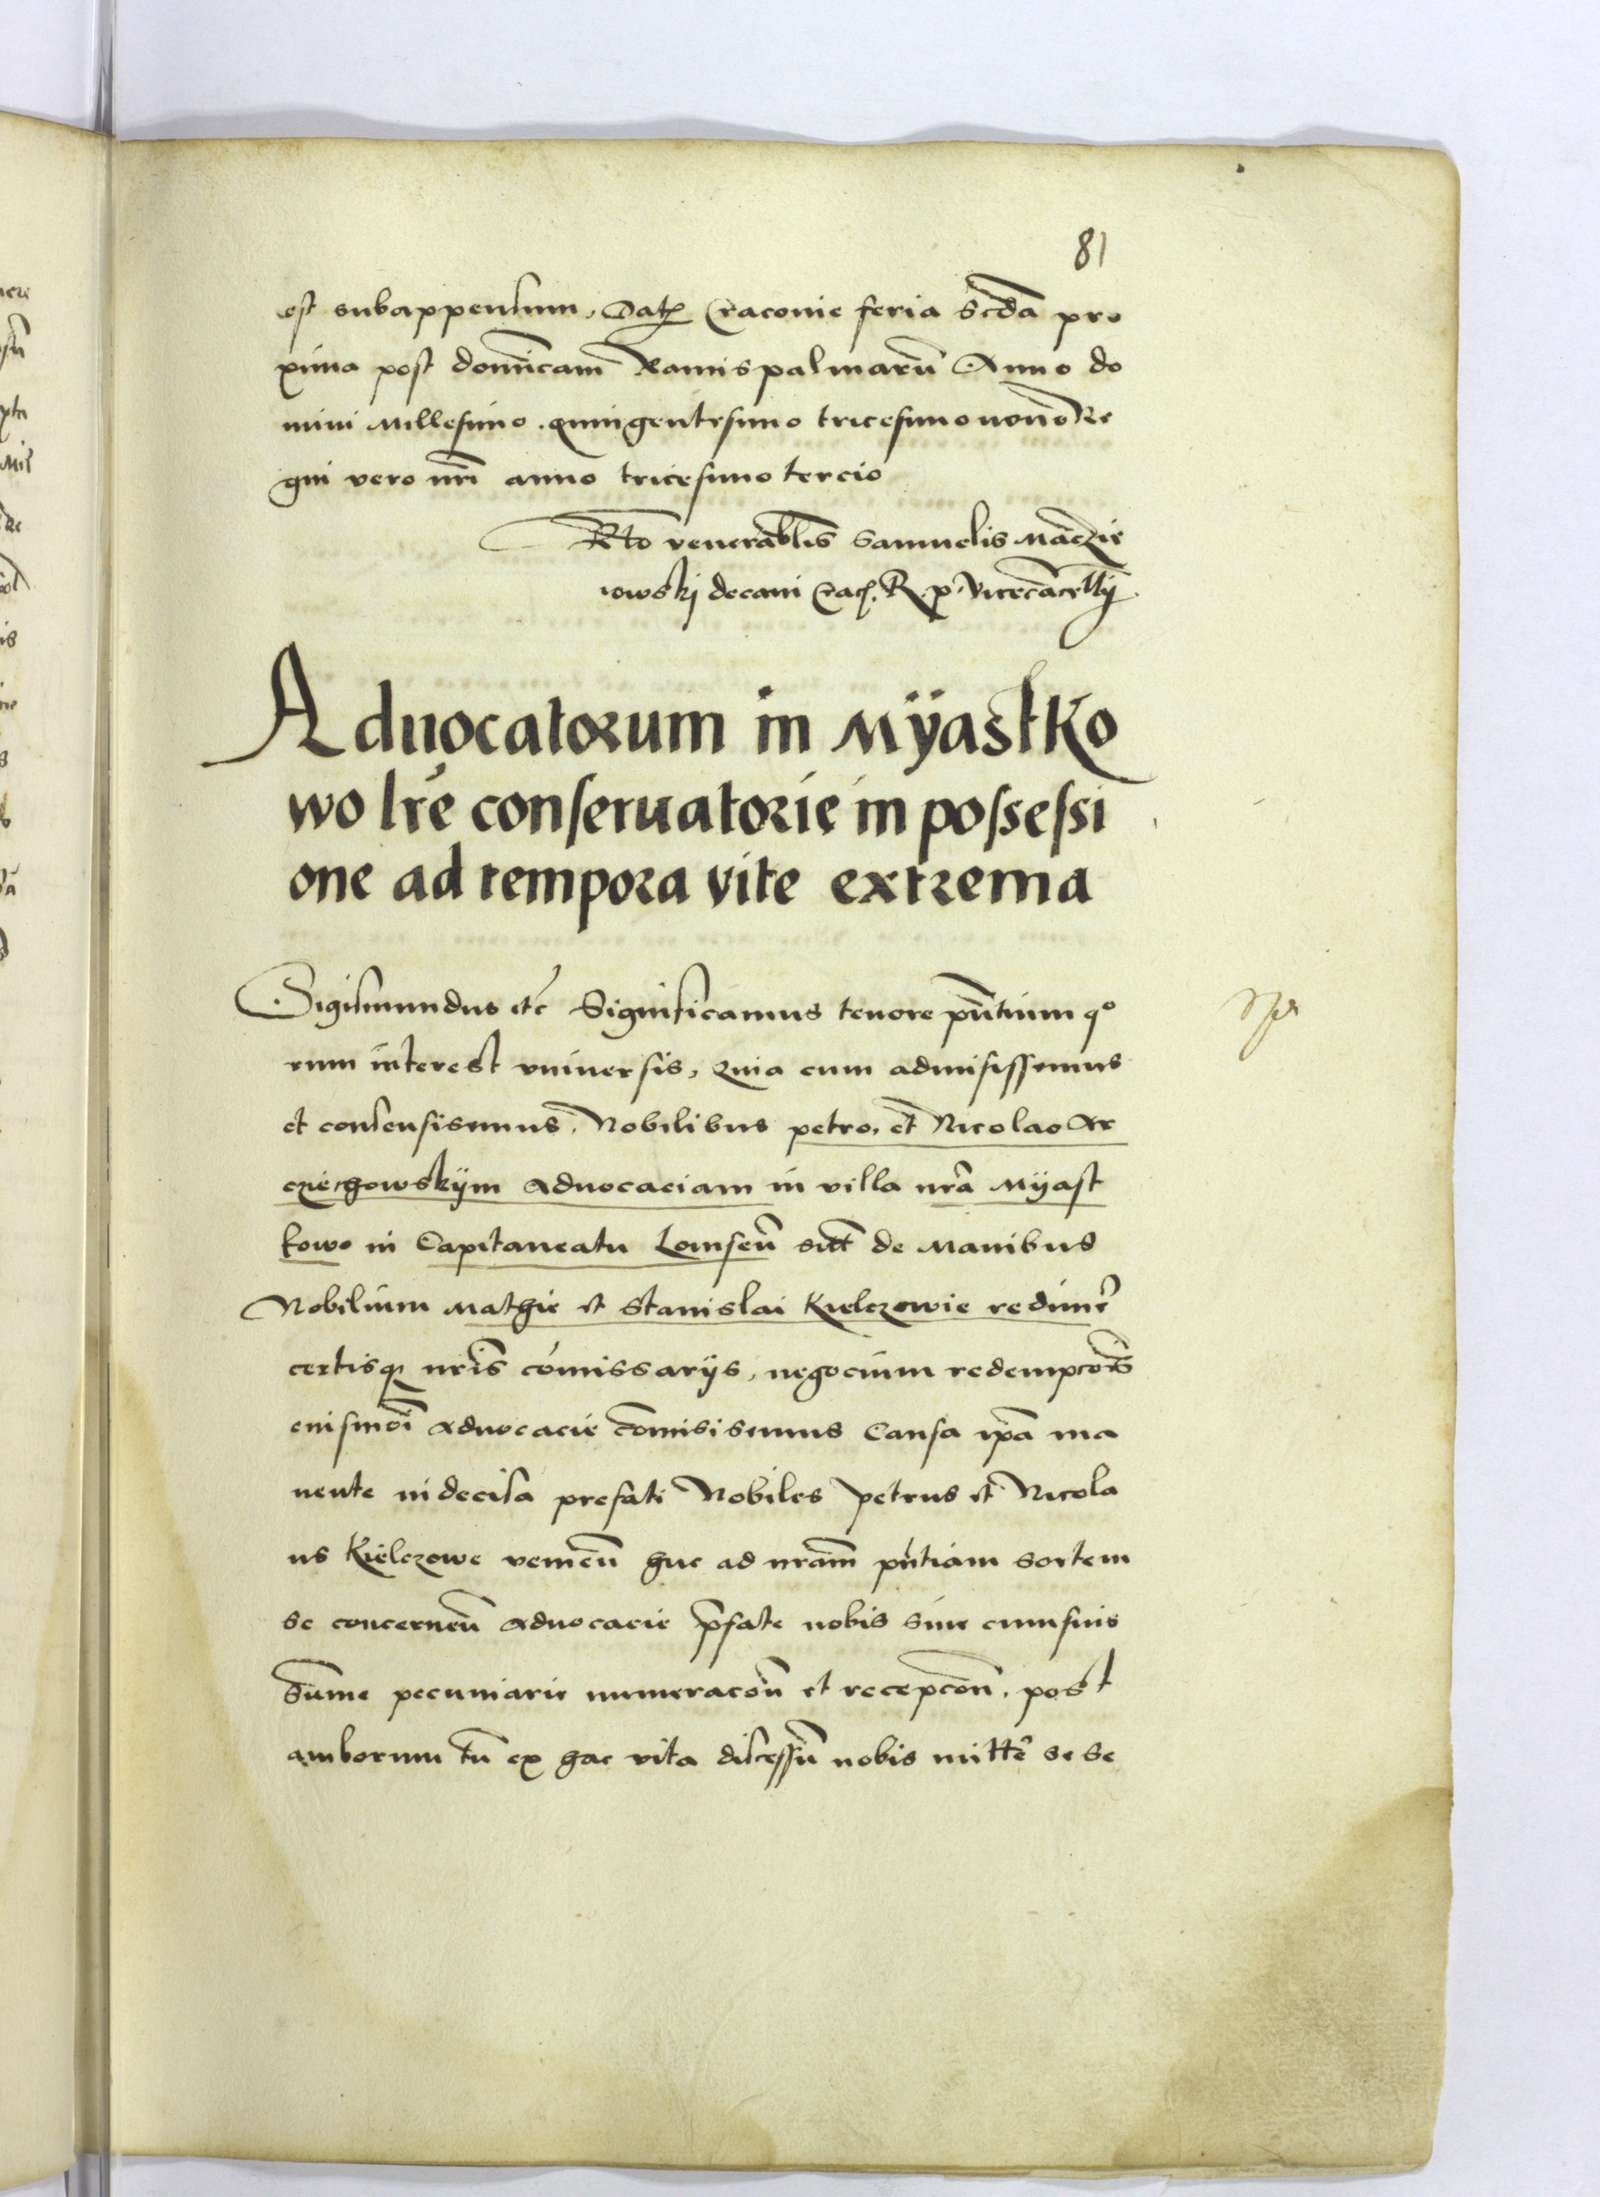 81
est subappensum, Datũ Cracovie feria Scďa pro
xima post dominicam Ramispalmarũ Anno do
mini Millesimo quingentesimo tricesimo nono Re
gni vero nrĩ anno tricesimo tercio
Rto venerabĩlis Samuelis Maczie
iowskj decani Crac͛. R. p. Vicecãcellĩj
Aduocatorum in Mÿastko
wo lrẽ conseruatorie in possessi
one ad tempora vite extrema
Sigismundus etc Significamus tenore pñtium q°
rum interest vniversis, quia cum admisissemus
et consensissemus, Nobilibus petro, et Nicolao
aduocaciam in villa nrã Myast
kowo in Capitaneatu Lomseñ de Manibus
Nobilium Mathie et Stanislai Kielczowie redimẽ
certisq nrĩs cõmissarijs, negocium redempcoñis
eiusmoĩ aduocacie cõmisissemus Causa ipã ma
nente indecisa prefati Nobiles petrus et Nicola
us Kielczowe venieñ huc ad nrãm pñtiam sortem
se concerneñ aduocacie p̃fate nobis sine cumsuis
Sũme pecuniarie numeracoñ et recepcoñ, post
amborum tñ ex hac vita discessũ nobis mittẽ se se